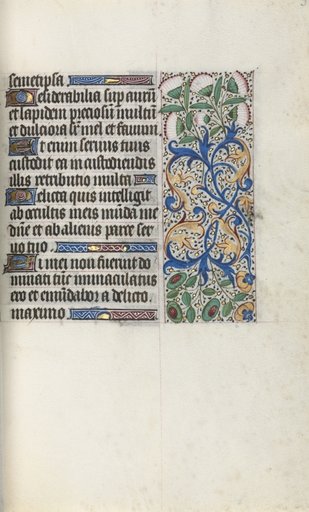 semetipsa
Desiderabilia sup̄ aurū
et lapidem preciosū multū
et dulciora sr̄ mel et fauum.
Et enim seruus tuus
custodit ea in custodiendis
illis retributio multa
Delicta quis intelligit
ab ocultis meis mūda me
dn̄e et ab alienis parce ser
uo tuo
Si mei non fuerint do
minati tūc inmaculatus
ero et emūdabor a delicto.
maximo